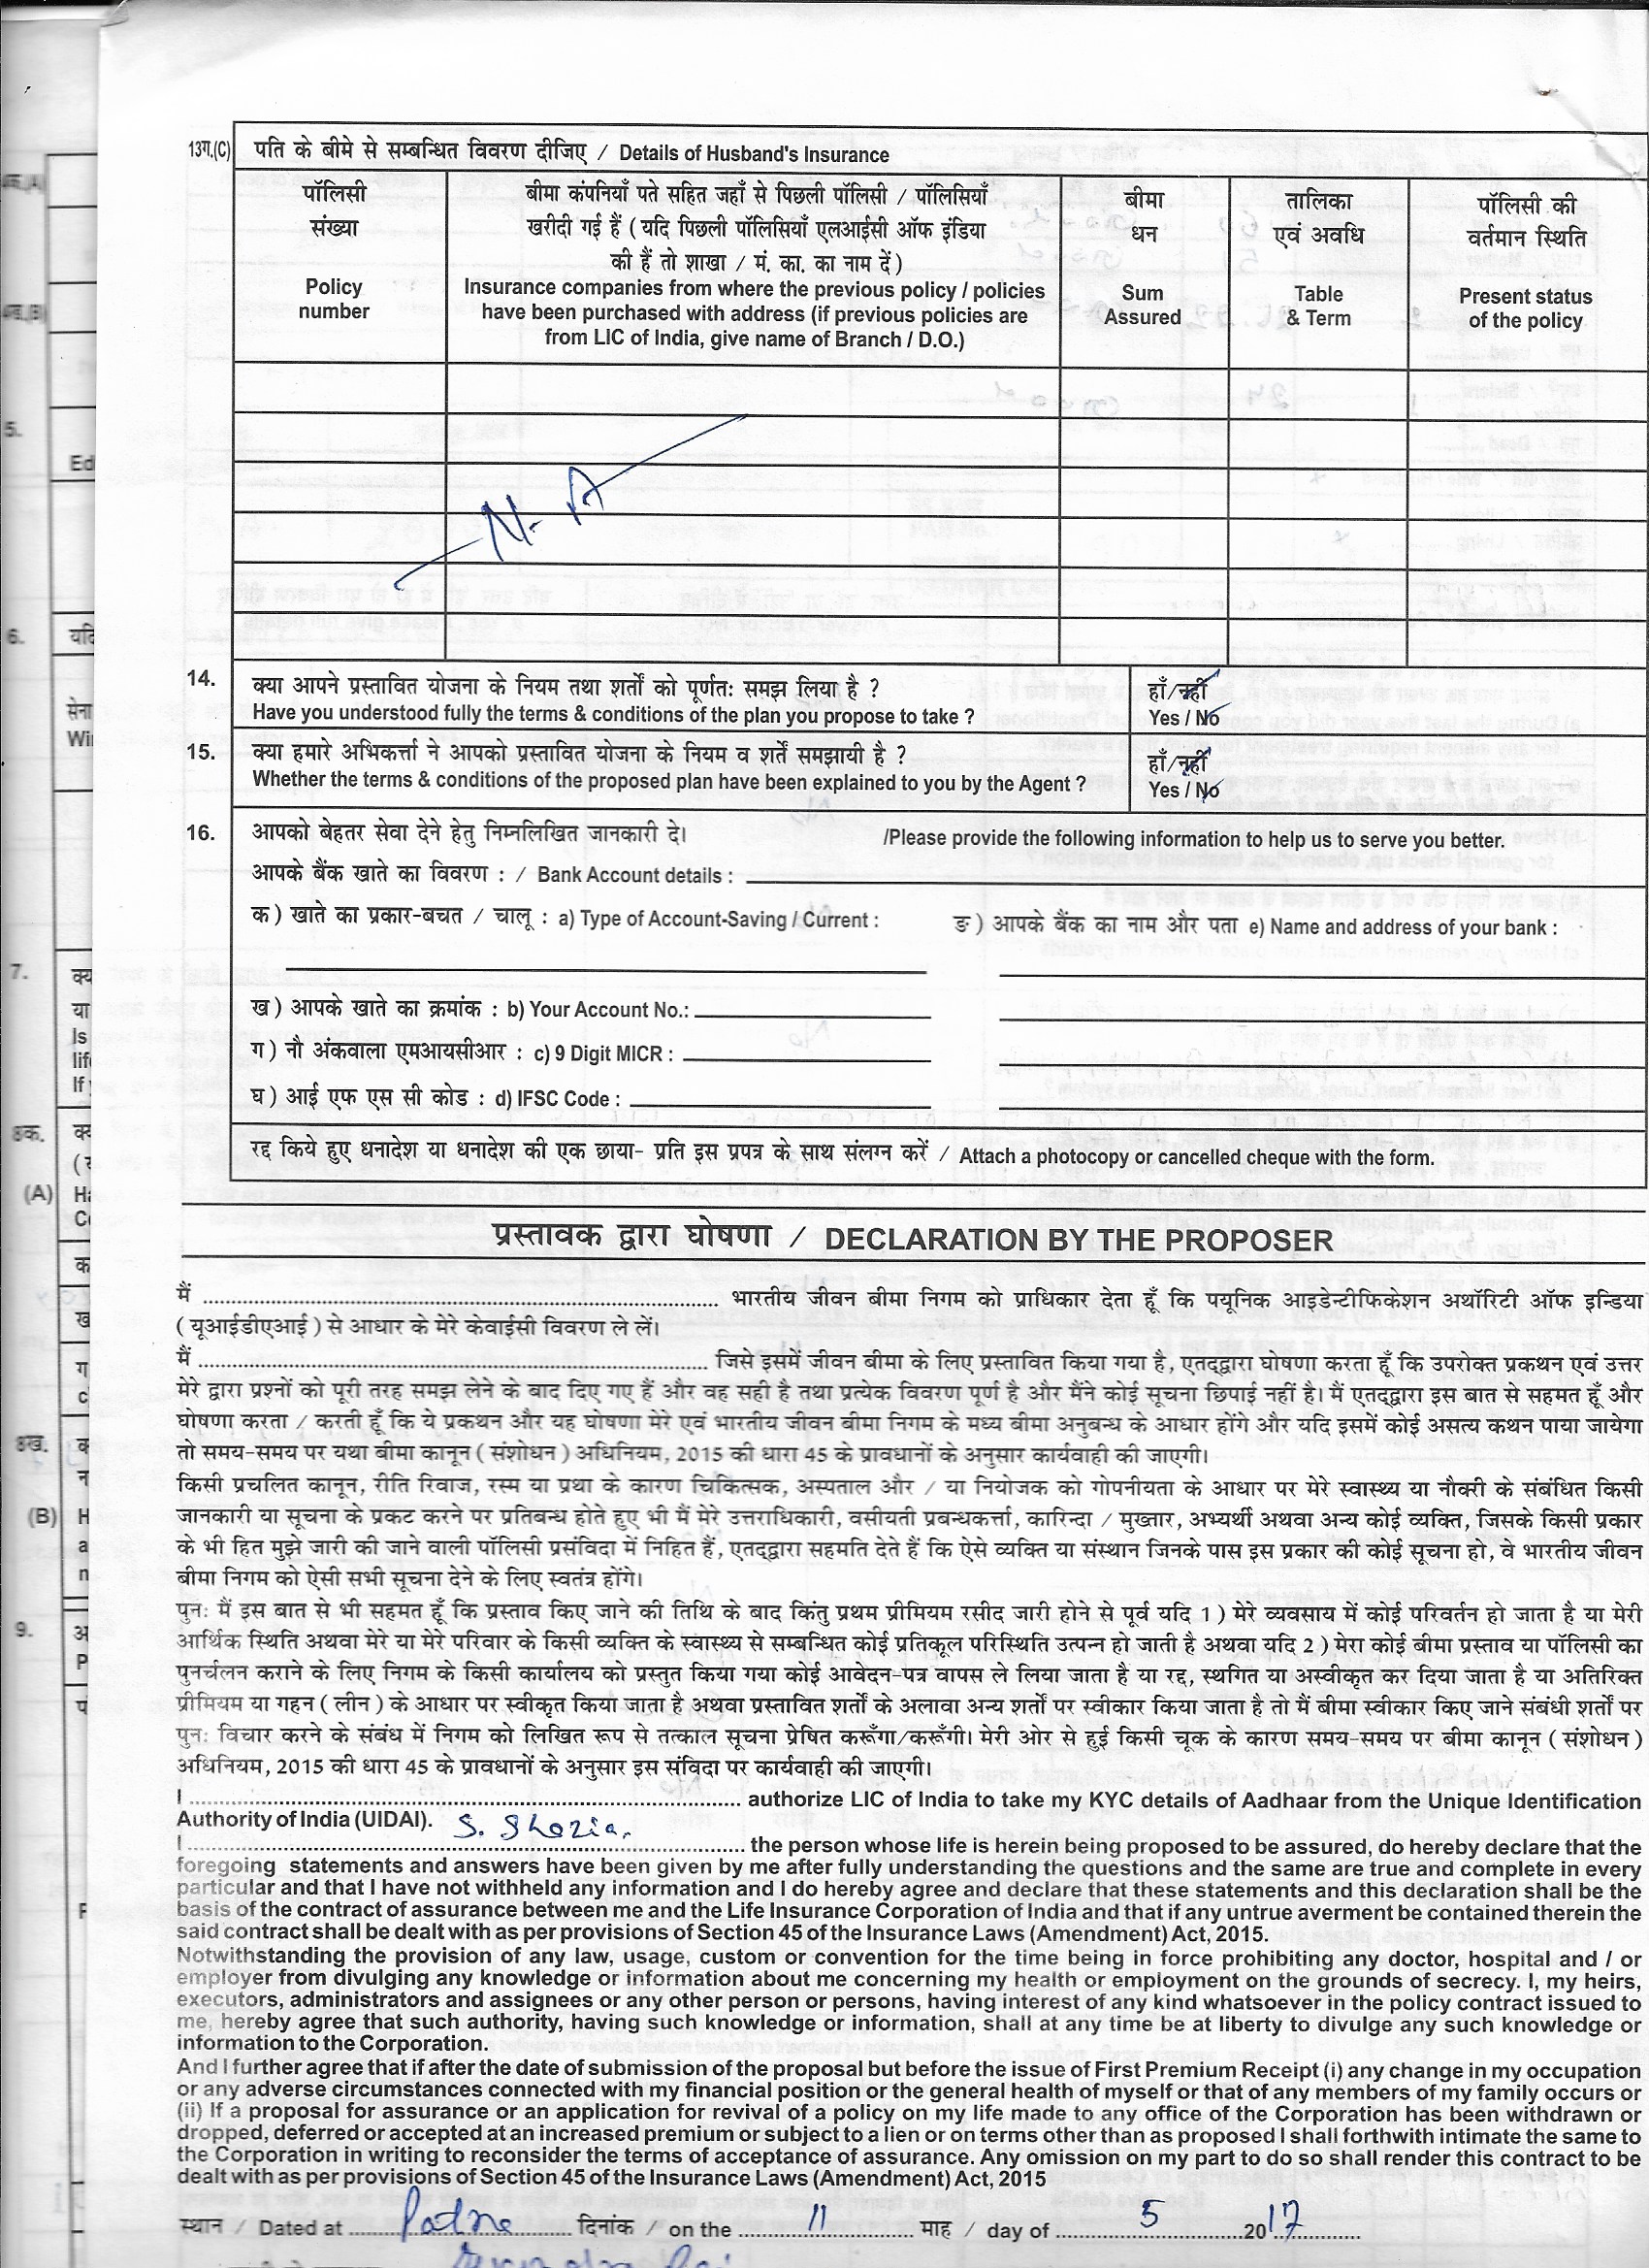 13ग.(C) पति के बीमे से सम्बन्धित विवरण दीजिए / Details of Husband's Insurance
पॉलिसी संख्या Policy number
बीमा कंपनियाँ पते सहित जहाँ से पिछली पॉलिसी / पॉलिसियाँ
खरीदी गई हैं ( यदि पिछली पॉलिसियाँ एलआईसी ऑफ इंडिया
की हैं तो शाखा / मं. का. का नाम दें )
Insurance companies from where the previous policy / policies
have been purchased with address (if previous policies are
from LIC of India, give name of Branch / D.O.)
बीमा धन Sum Assured
तालिका एवं अवधि Table & Term
पॉलिसी की वर्तमान स्थिति Present status of the policy
N. A
14. क्या आपने प्रस्तावित योजना के नियम तथा शर्तों को पूर्णतः समझ लिया है ? हाँ/नहीं
Have you understood fully the terms & conditions of the plan you propose to take ? Yes / No
15. क्या हमारे अभिकर्त्ता ने आपको प्रस्तावित योजना के नियम व शर्ते समझायी है ? हाँ/नहीं
Whether the terms & conditions of the proposed plan have been explained to you by the Agent ? Yes / No
16. आपको बेहतर सेवा देने हेतु निम्नलिखित जानकारी दे। /Please provide the following information to help us to serve you better.
आपके बैंक खाते का विवरण : / Bank Account details :
क ) खाते का प्रकार-बचत / चालू : a) Type of Account-Saving / Current : ङ ) आपके बैंक का नाम और पता e) Name and address of your bank :
ख ) आपके खाते का क्रमांक : b) Your Account No.:
ग ) नौ अंकवाला एमआयसीआर : c) 9 Digit MICR :
घ ) आई एफ एस सी कोड : d) IFSC Code :
रद्द किये हुए धनादेश या धनादेश की एक छाया- प्रति इस प्रपत्र के साथ संलग्न करें / Attach a photocopy or cancelled cheque with the form.
प्रस्तावक द्वारा घोषणा / DECLARATION BY THE PROPOSER
मैं ........ भारतीय जीवन बीमा निगम को प्राधिकार देता हूँ कि पयूनिक आइडेन्टीफिकेशन अथॉरिटी ऑफ इन्डिया
( यूआईडीएआई ) से आधार के मेरे केवाईसी विवरण ले लें।
मैं ........ जिसे इसमें जीवन बीमा के लिए प्रस्तावित किया गया है, एतद्द्वारा घोषणा करता हूँ कि उपरोक्त प्रकथन एवं उत्तर
मेरे द्वारा प्रश्नों को पूरी तरह समझ लेने के बाद दिए गए हैं और वह सही है तथा प्रत्येक विवरण पूर्ण है और मैंने कोई सूचना छिपाई नहीं है। मैं एतद्द्वारा इस बात से सहमत हूँ और
घोषणा करता / करती हूँ कि ये प्रकथन और यह घोषणा मेरे एवं भारतीय जीवन बीमा निगम के मध्य बीमा अनुबन्ध के आधार होंगे और यदि इसमें कोई असत्य कथन पाया जायेगा
तो समय-समय पर यथा बीमा कानून ( संशोधन ) अधिनियम, 2015 की धारा 45 के प्रावधानों के अनुसार कार्यवाही की जाएगी।
किसी प्रचलित कानून, रीति रिवाज, रस्म या प्रथा के कारण चिकित्सक, अस्पताल और / या नियोजक को गोपनीयता के आधार पर मेरे स्वास्थ्य या नौक्री के संबंधित किसी
जानकारी या सूचना के प्रकट करने पर प्रतिबन्ध होते हुए भी मैं मेरे उत्तराधिकारी, वसीयती प्रबन्धकर्त्ता, कारिन्दा / मुख्तार, अभ्यर्थी अथवा अन्य कोई व्यक्ति, जिसके किसी प्रकार
के भी हित मुझे जारी की जाने वाली पॉलिसी प्रसंविदा में निहित हैं, एतद्द्वारा सहमति देते हैं कि ऐसे व्यक्ति या संस्थान जिनके पास इस प्रकार की कोई सूचना हो, वे भारतीय जीवन
बीमा निगम को ऐसी सभी सूचना देने के लिए स्वतंत्र होंगे।
पुनः मैं इस बात से भी सहमत हूँ कि प्रस्ताव किए जाने की तिथि के बाद किंतु प्रथम प्रीमियम रसीद जारी होने से पूर्व यदि 1 ) मेरे व्यवसाय में कोई परिवर्तन हो जाता है या मेरी
आर्थिक स्थिति अथवा मेरे या मेरे परिवार के किसी व्यक्ति के स्वास्थ्य से सम्बन्धित कोई प्रतिकूल परिस्थिति उत्पन्न हो जाती है अथवा यदि 2 ) मेरा कोई बीमा प्रस्ताव या पॉलिसी का
पुनर्चलन कराने के लिए निगम के किसी कार्यालय को प्रस्तुत किया गया कोई आवेदन-पत्र वापस ले लिया जाता है या रद्द, स्थगित या अस्वीकृत कर दिया जाता है या अतिरिक्त
प्रीमियम या गहन ( लीन ) के आधार पर स्वीकृत किया जाता है अथवा प्रस्तावित शर्तों के अलावा अन्य शर्तों पर स्वीकार किया जाता है तो मैं बीमा स्वीकार किए जाने संबंधी शर्तों पर
पुनः विचार करने के संबंध में निगम को लिखित रूप से तत्काल सूचना प्रेषित करूँगा/करूँगी। मेरी ओर से हुई किसी चूक के कारण समय-समय पर बीमा कानून ( संशोधन )
अधिनियम, 2015 की धारा 45 के प्रावधानों के अनुसार इस संविदा पर कार्यवाही की जाएगी।
I ........ authorize LIC of India to take my KYC details of Aadhaar from the Unique Identification
Authority of India (UIDAI). S. Shazia
I ........ the person whose life is herein being proposed to be assured, do hereby declare that the
foregoing statements and answers have been given by me after fully understanding the questions and the same are true and complete in every
particular and that I have not withheld any information and I do hereby agree and declare that these statements and this declaration shall be the
basis of the contract of assurance between me and the Life Insurance Corporation of India and that if any untrue averment be contained therein the
said contract shall be dealt with as per provisions of Section 45 of the Insurance Laws (Amendment) Act, 2015.
Notwithstanding the provision of any law, usage, custom or convention for the time being in force prohibiting any doctor, hospital and / or
employer from divulging any knowledge or information about me concerning my health or employment on the grounds of secrecy. I, my heirs,
executors, administrators and assignees or any other person or persons, having interest of any kind whatsoever in the policy contract issued to
me, hereby agree that such authority, having such knowledge or information, shall at any time be at liberty to divulge any such knowledge or
information to the Corporation.
And I further agree that if after the date of submission of the proposal but before the issue of First Premium Receipt (i) any change in my occupation
or any adverse circumstances connected with my financial position or the general health of myself or that of any members of my family occurs or
(ii) If a proposal for assurance or an application for revival of a policy on my life made to any office of the Corporation has been withdrawn or
dropped, deferred or accepted at an increased premium or subject to a lien or on terms other than as proposed I shall forthwith intimate the same to
the Corporation in writing to reconsider the terms of acceptance of assurance. Any omission on my part to do so shall render this contract to be
dealt with as per provisions of Section 45 of the Insurance Laws (Amendment) Act, 2015
स्थान / Dated at Patna दिनांक / on the 11 माह / day of 5 2017